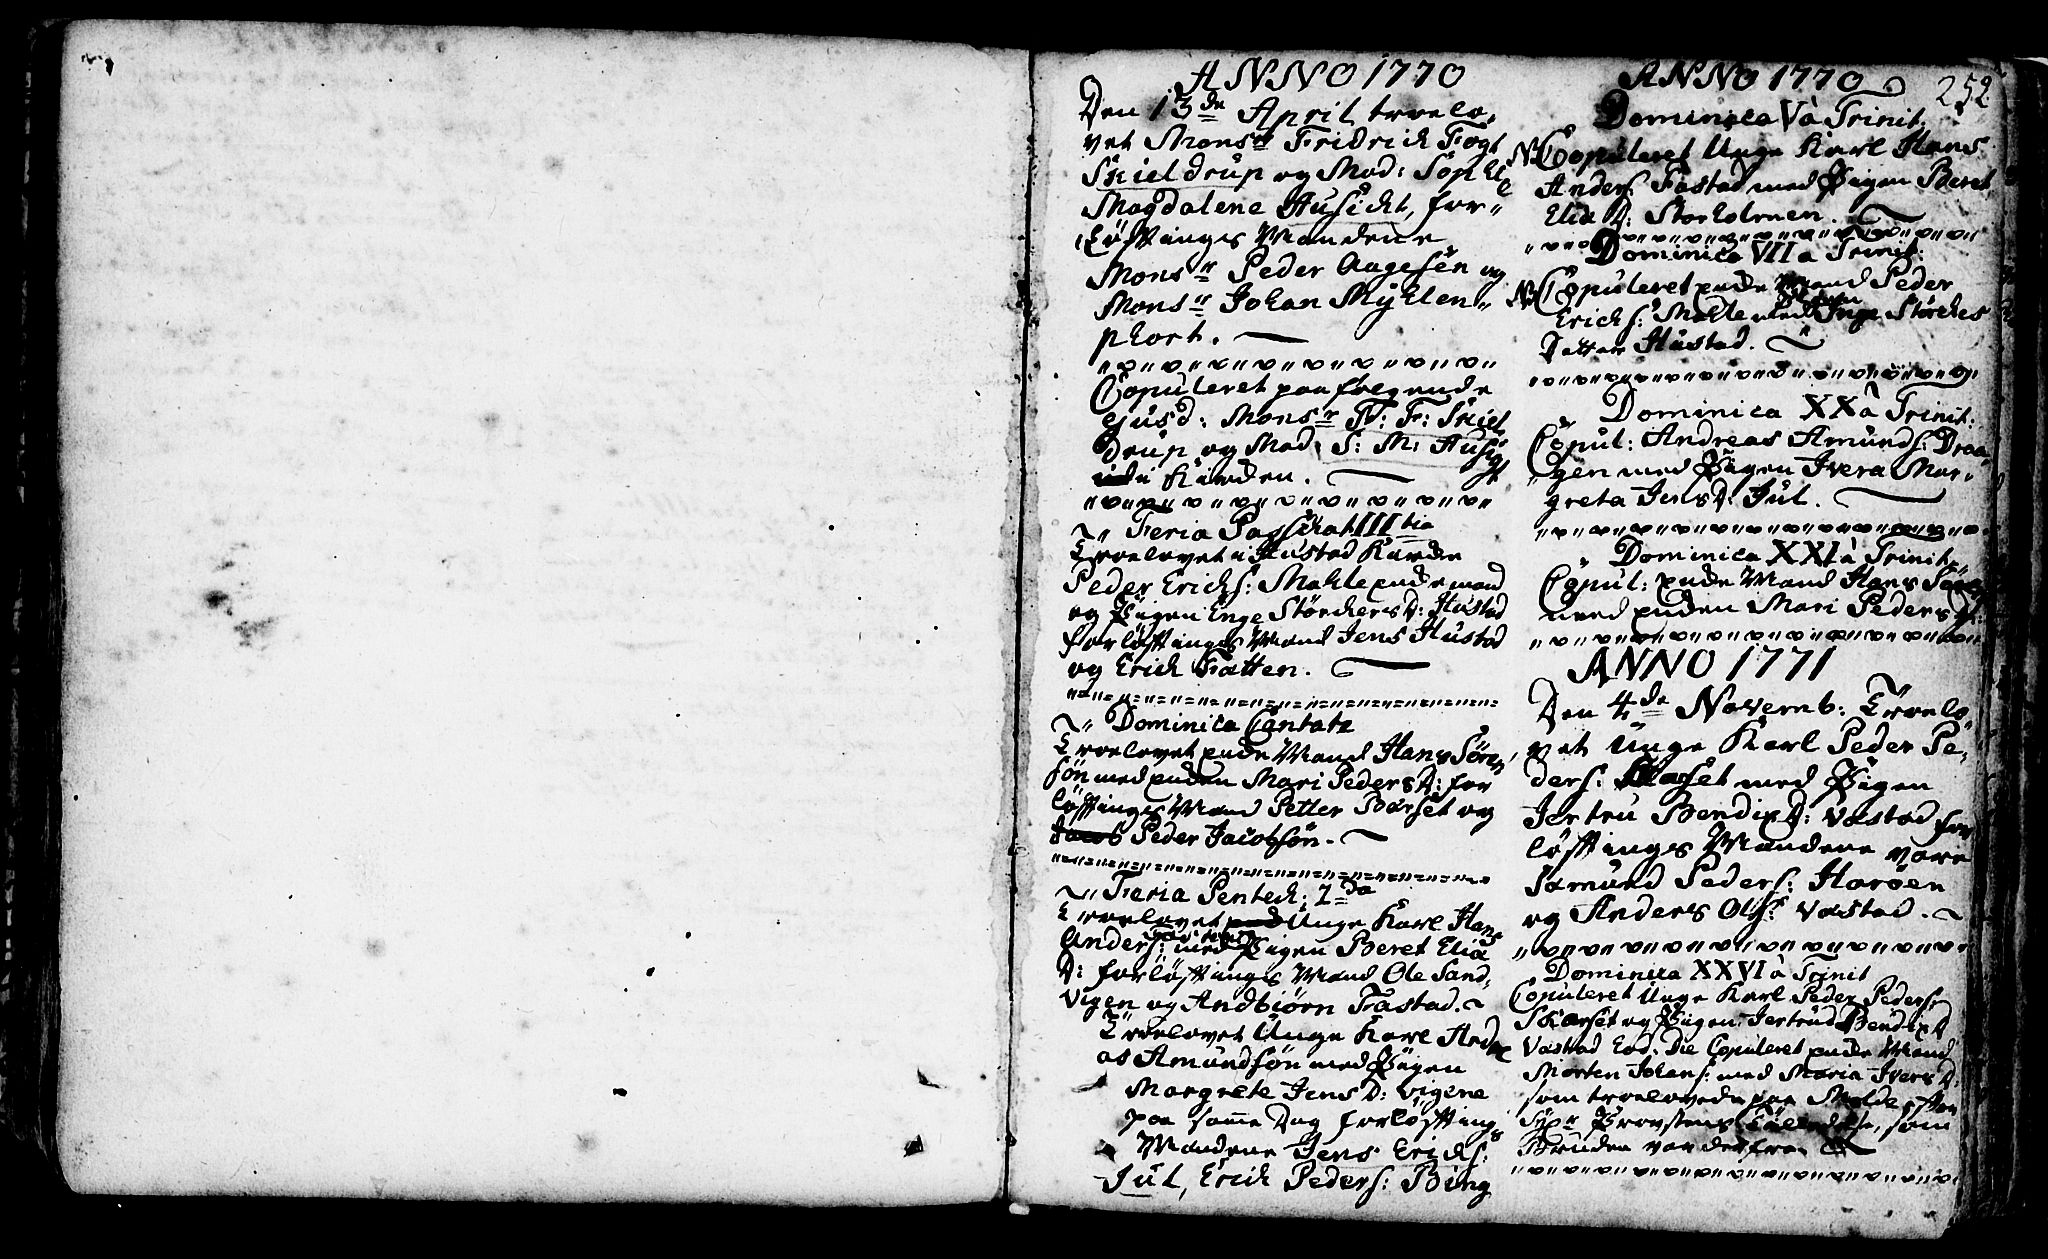 ANNO 1770
Den 13de April troelo,
vet Monsr Fridrich Fogt
Skieldrup og Mad: Sophie
Magdalene Husicht, for"
løftinges Mændene
Monsr Peder Aagesen og
Monsr Johan Myhlen"
phort.
Copuleret paafølgende
Ejusd: Monsr F: F: Skiel
drup og Mad: S: M: Husigt
i Kirken.
Feria Paschat IIItia
Troelovet i Hustad Kirke
Peder Erichs: Mahle enke mand
og Pigen Enge Störchers D: Hustad
forløftinges Mænd Jens Hustad
og Erich Tatten.
Dominica Cantate
Troelovet enke Mand Hans Sören
søn med enken Mari Peders D: for
løftinges Mænd Petter Barset og
Jacob Peder Jacobsøn.
Feria Pentech: 2da
Troelovet Unge Karl Hans
Anders: Tastad med Pigen Beret Elia
D: forløftinges Mænd Ole Sand,
vigen og Andbiörn Tastad.
Troelovet Unge Karl Andre
as Amundsøn med Pigen
Margrete Jens D: vigene
paa samme Dag forløftings
Mændene Jens Erichs:
Jul, Erich Peders: Bing
ANNO 1770
252
Dominica V à Trinit.
N Copuleret Unge Karl Hans
Anders: Tastad med Pigen Beret
Elia D: Storholmen.
Dominica VII a Trinit:
N Copuleret enke Mand Peder
Erichs: Mahle med Pigen Inge Störches
Datter Hustad.
Dominica XX à Trinit:
Copul: Andreas Amunds: Draa"
gen med Pigen Ivera Mar"
greta Jens D: Jul.
Dominica XXI à Trinit
Copul: enke Mand Hans Sörens
med enken Mari Peders D:
ANNO 1771
Den 4de Novemb: Troelo,
vet Unge Karl Peder Pe,
ders: Skarset med Pigen
Jertru Bendix D: Vastad for
løftinges Mændene vare
Samund Peders: Harøen
og Anders Ols: Vastad.
Dominica XXVI à Trinit
Copuleret Unge Karl Peder Peders:
Skarset og Pigen Jertrud Bendix D
Vastad Eod: Die Copuleret enke Mand
Morten Johans: med Maria Ivers D:
som troelovede paa Molde, efter
Hr Provstens Tilladelse, som
Bruden var derfra.